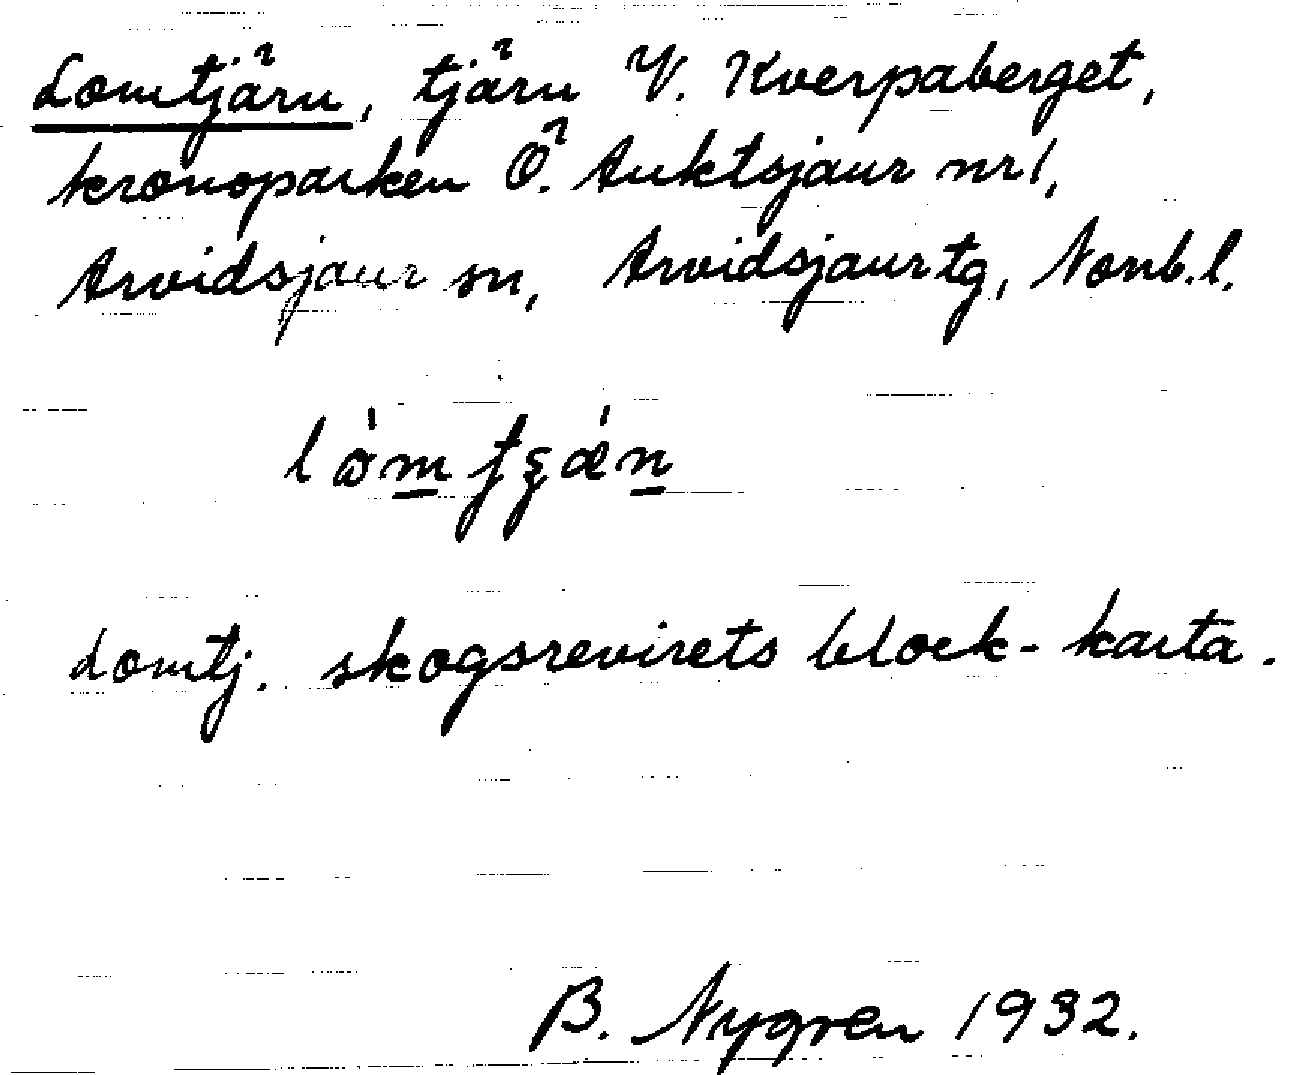 Lomtjärn, tjärn V. Kverpaberget,
kronoparken Ö. Auktsjaur nr 1,
Arvidsjaur sn, Arvidsjaur tg, Nonb. l.
Lomtj. skogsrevirets block-karta.
B. Nygren 1932.